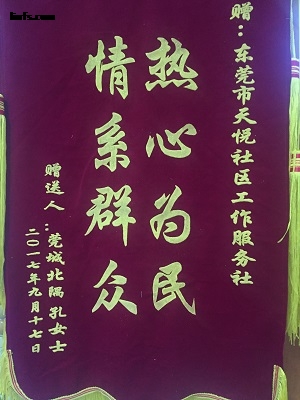 赠：东莞市天悦社区工作服务社
热心为民
情系群众
赠送人：莞城北隅孔女士
二〇一七年九月十七日